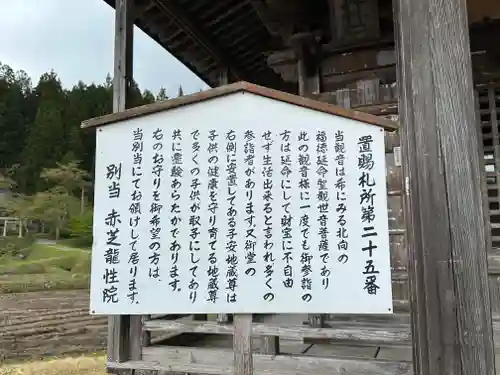 置賜札所第二十五番
当観音は希にみる北向の
福徳延命聖観世音菩薩であり
此の観音様に一度でも御参詣の
方は延命にして財宝に不自由
せず生活出来ると言われ多くの
参詣者があります又御堂の
右側に安置してある子安地蔵尊は
子供の健康を守り育てる地蔵尊
で多くの子供が取子にしてあり
共に霊験あらたかであります。
右のお守りを御希望の方は、
当別当にてお頒けして居ります。
別当 赤芝龍性院